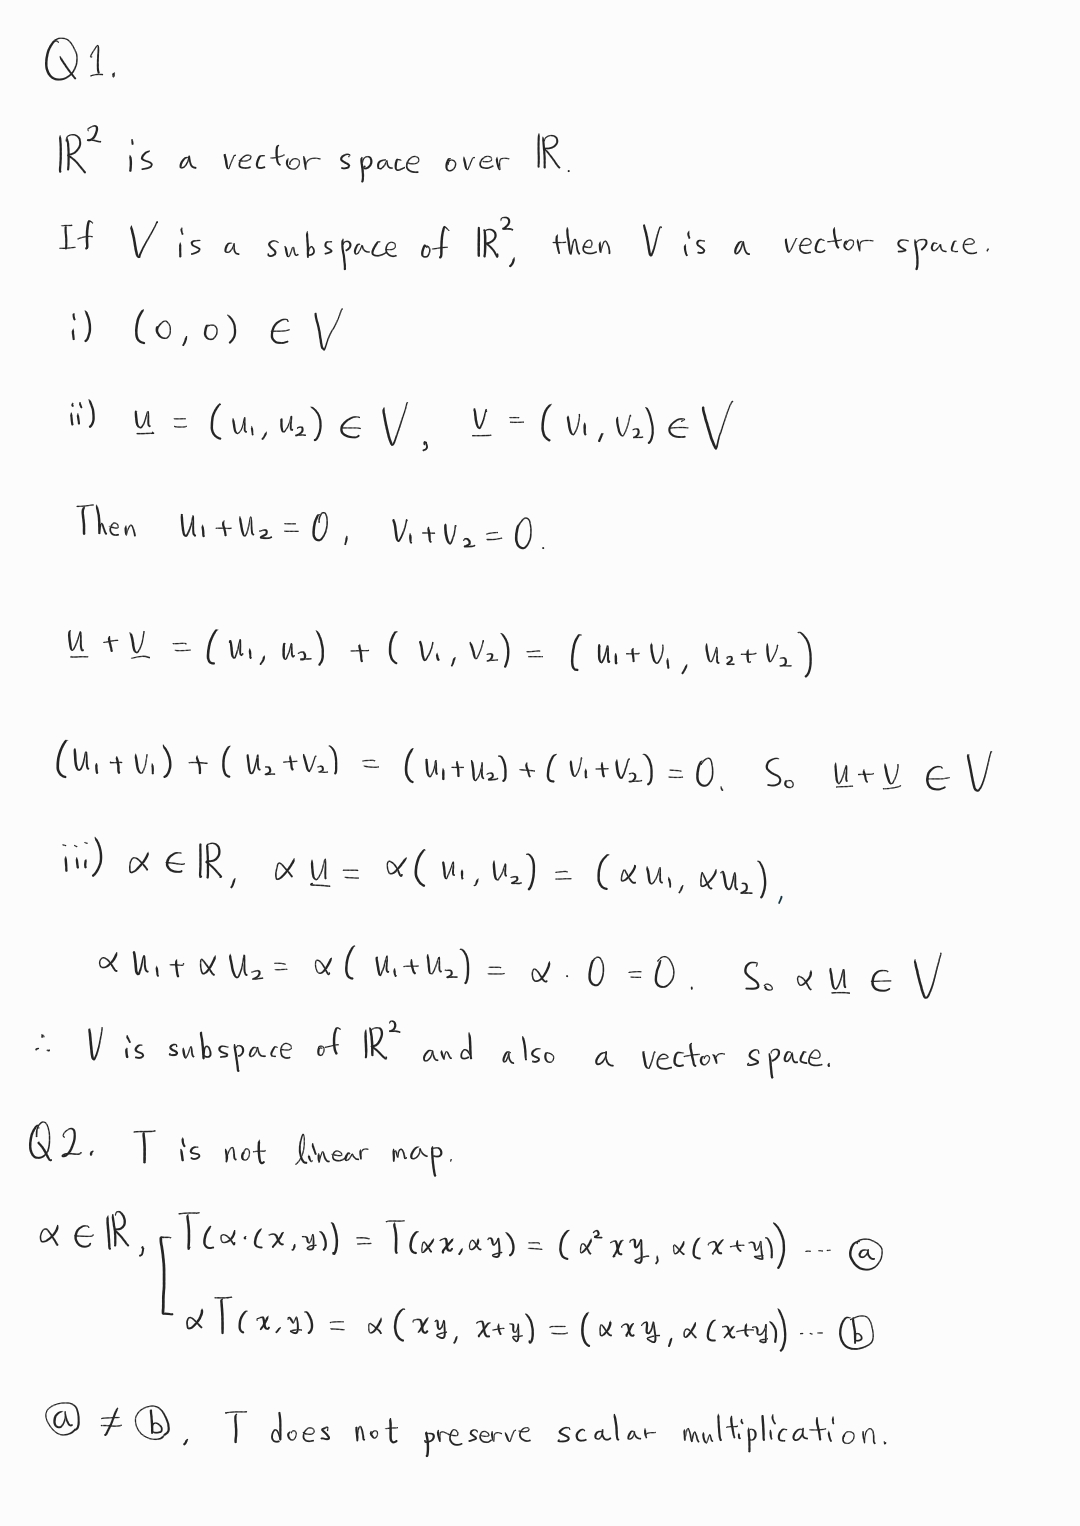 Q1.
ℝ² is a vector space over ℝ.
If V is a subspace of ℝ², then V is a vector space.
i) (0, 0) ∈ V
ii) u̲ = (u₁, u₂) ∈ V, v̲ = (v₁, v₂) ∈ V
Then u₁+u₂ = 0, v₁+v₂ = 0.
u̲ + v̲ = (u₁, u₂) + (v₁, v₂) = (u₁+v₁, u₂+v₂)
(u₁+v₁) + (u₂+v₂) = (u₁+u₂) + (v₁+v₂) = 0. So u̲+v̲ ∈ V
iii) α ∈ ℝ, αu̲ = α(u₁, u₂) = (αu₁, αu₂),
αu₁+αu₂ = α(u₁+u₂) = α·0 = 0. So αu̲ ∈ V
∴ V is subspace of ℝ² and also a vector space.
Q2. T is not linear map.
α ∈ ℝ, T(α·(x,y)) = T(αx,αy) = (α²xy, α(x+y)) ... ⓐ
αT(x,y) = α(xy, x+y) = (αxy, α(x+y)) ... ⓑ
ⓐ ≠ ⓑ, T does not preserve scalar multiplication.